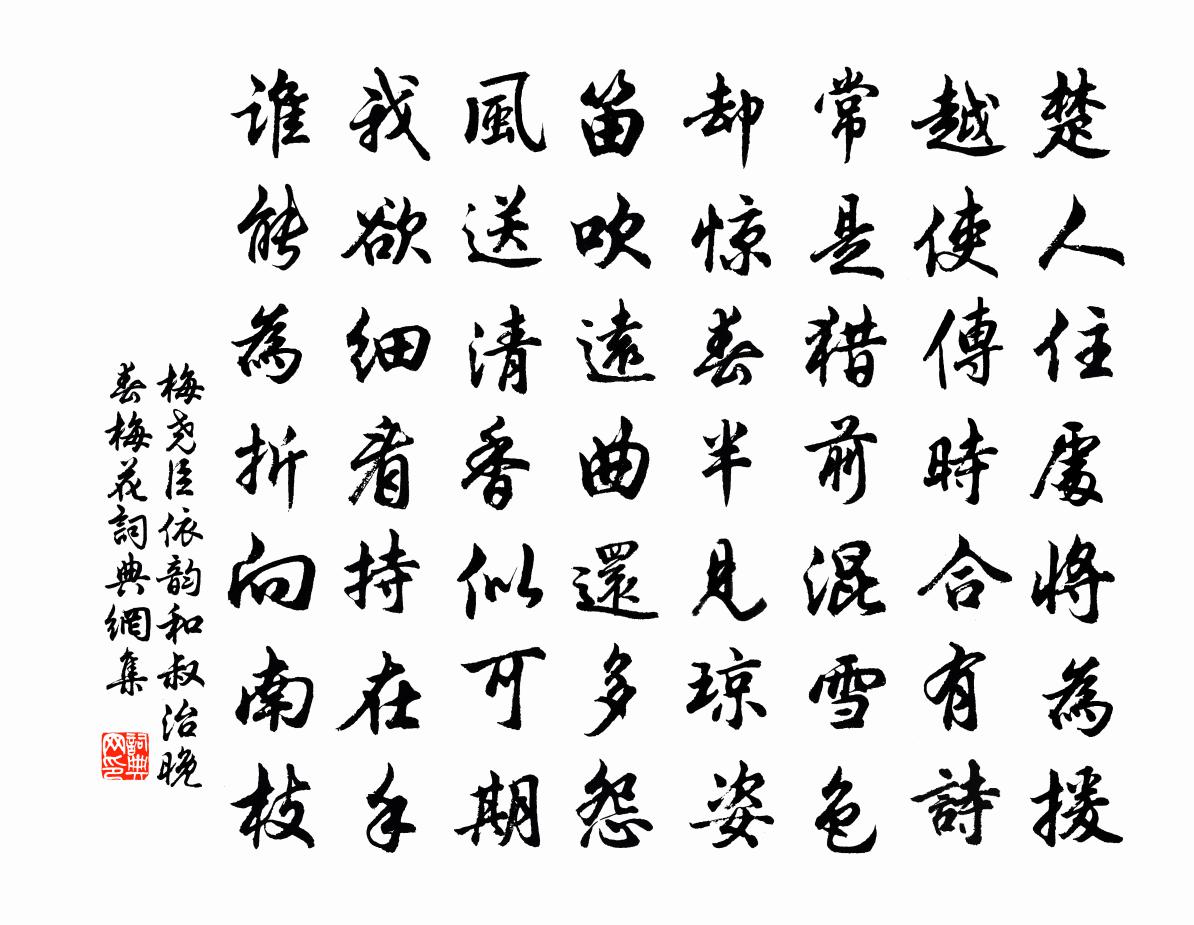 楚人住處將為援
越使傳時合有詩
常是猎前混雪色
却惊春半見琼姿
笛吹遠曲還多怨
風送清香似可期
我欲细看持在手
誰能為折向南枝
梅尧臣依韵和叔治晚
春梅花詞典網集
詞典
网印